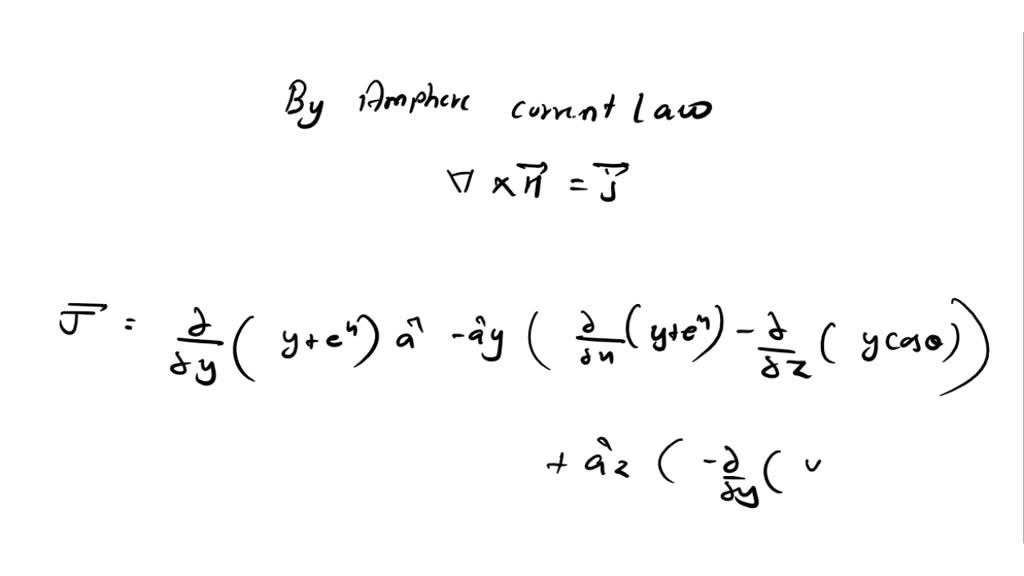 By Amphere current law
∇ × H⃗ = J⃗
J⃗ = ∂/∂y ( y+eˣ) â - ây ( ∂/∂x (y+eˣ) - ∂/∂z ( y cosθ))
+ âz ( -∂/∂y (